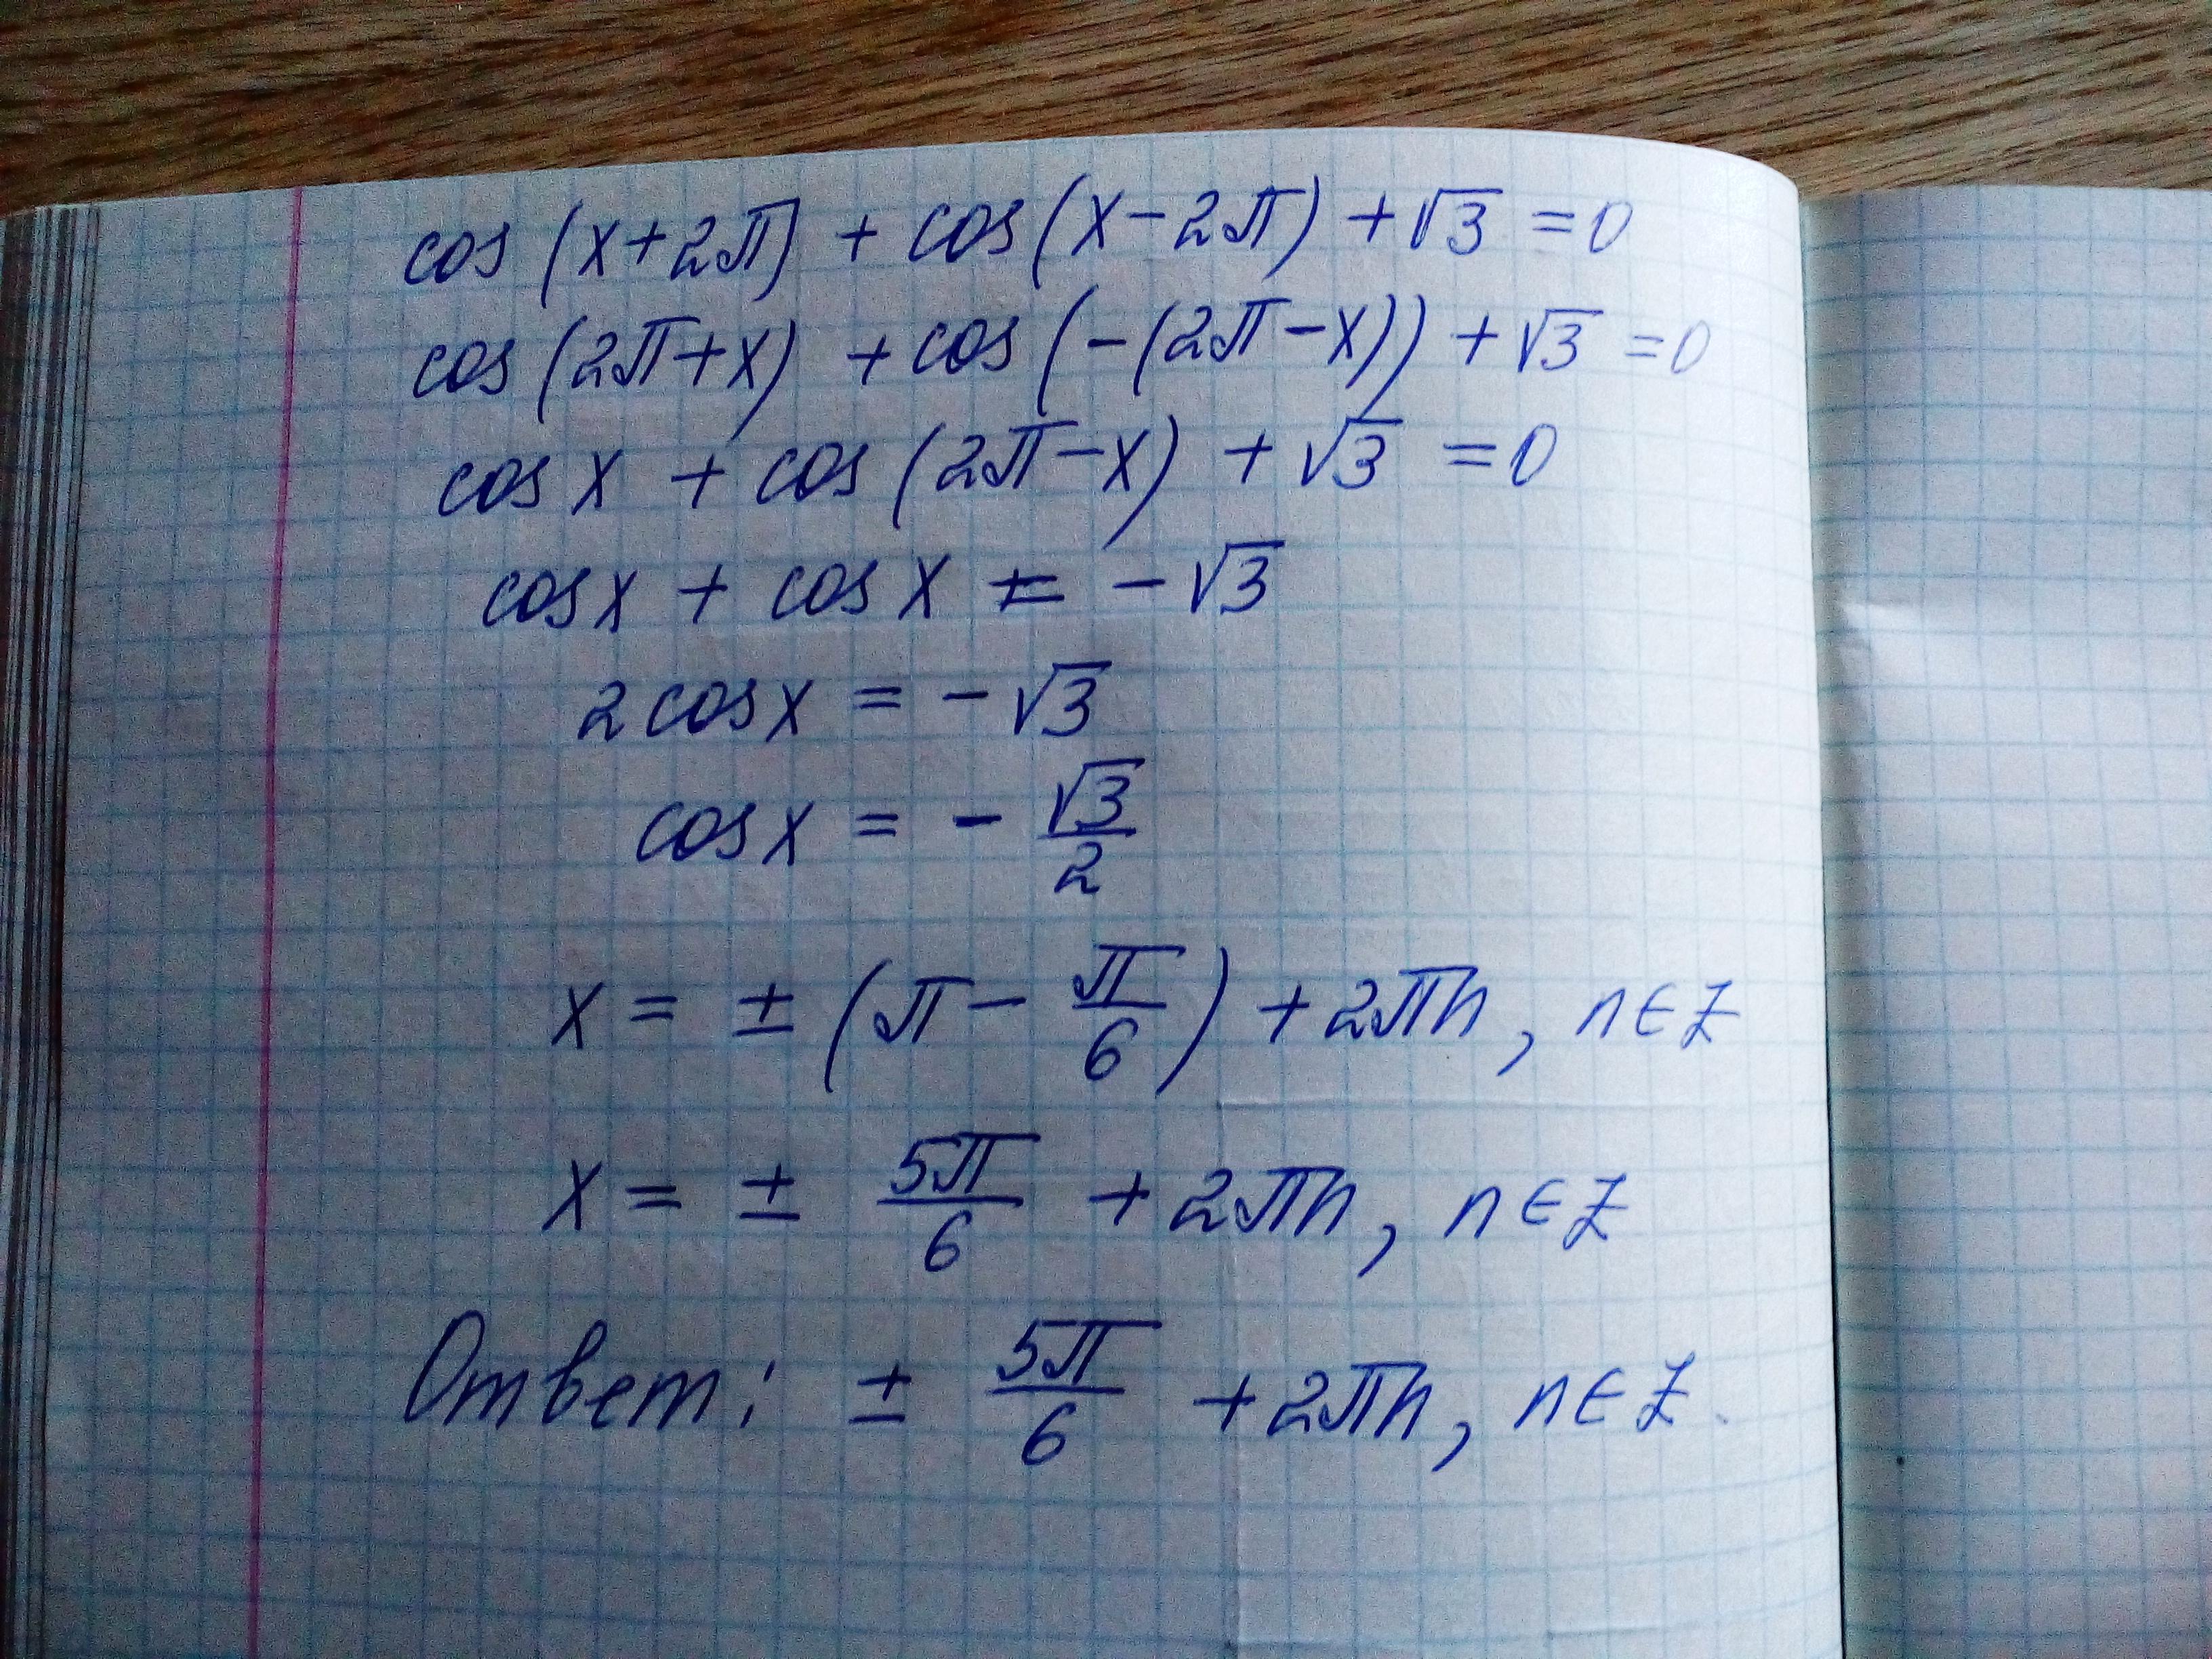 cos (x+2π) + cos (x-2π) + √3 = 0
cos (2π+x) + cos (-(2π-x)) + √3 = 0
cos x + cos (2π-x) + √3 = 0
cos x + cos x = -√3
2 cos x = -√3
cos x = - √3/2
x = ± (π - π/6) + 2πn, n ∈ Z
x = ± 5π/6 + 2πn, n ∈ Z
Ответ: ± 5π/6 + 2πn, n ∈ Z.